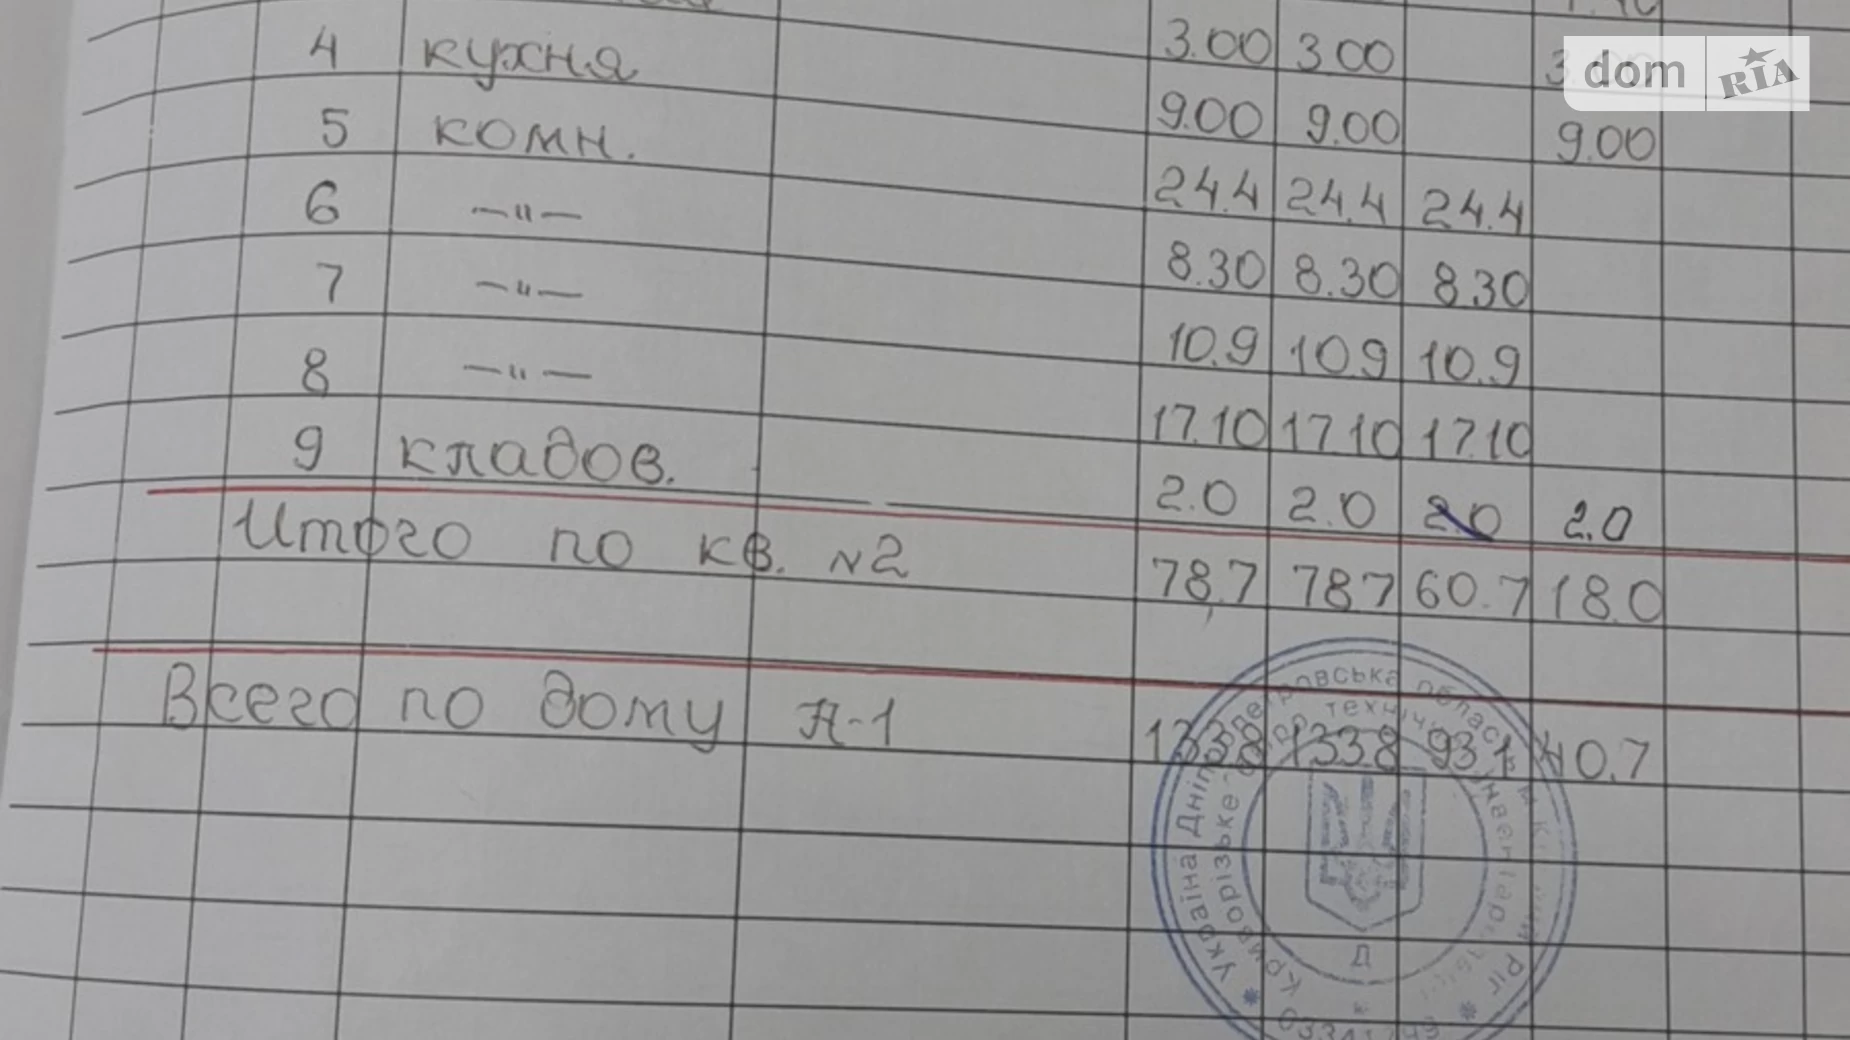 4 кухня 3.00 3.00
5 комн. 9.00 9.00 9.00
6 —"— 24.4 24.4 24.4
7 —"— 8.30 8.30 8.30
8 —"— 10.9 10.9 10.9
17.10 17.10 17.10
9 кладов. 2.0 2.0 2.0 2.0
Итого по кв. №2 78,7 78.7 60.7 18.0
Всего по дому А-1 133.8 133.8 93.1 40.7
dom RIA
Україна Дніпропетровська область м. Кривий Ріг
Криворізьке бюро технічної інвентаризації
Д